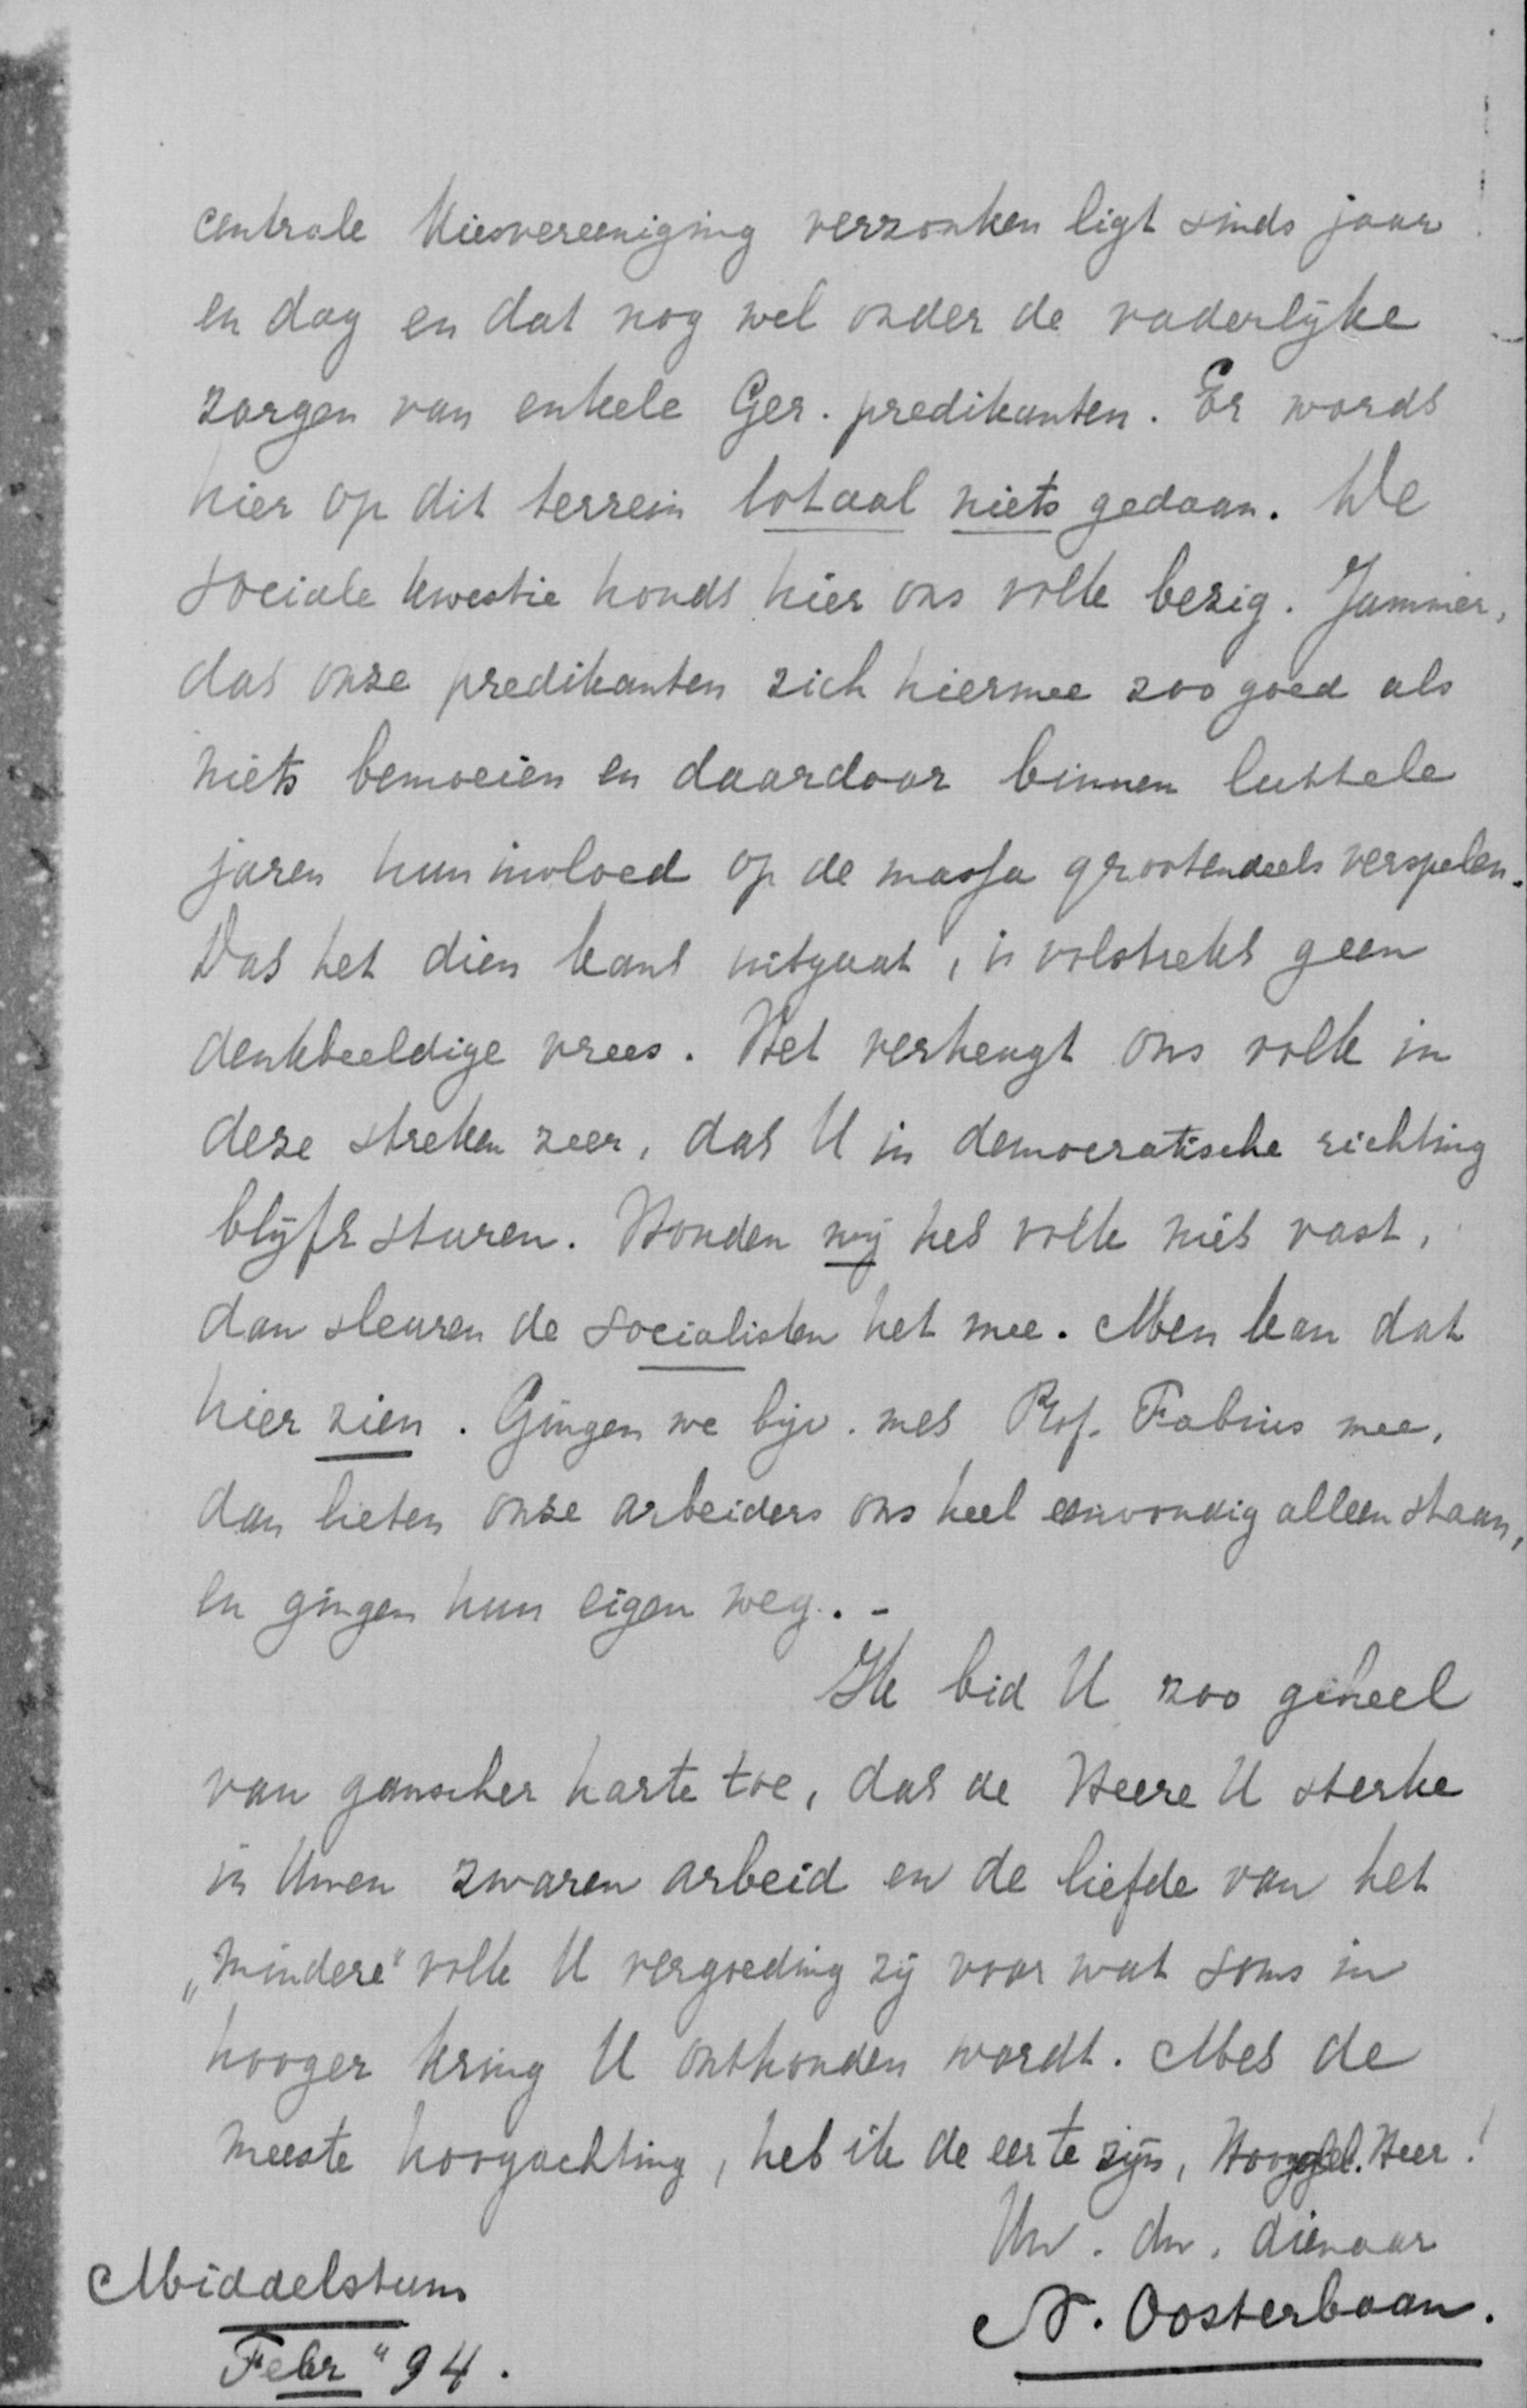 centrale Kiesvereeniging verzonken ligt sinds jaar
en dag en dat nog wel onder de vaderlijke
zorgen van enkele Ger. predikanten. Er wordt
hier op dit terrein totaal niets gedaan. De
sociale kwestie houdt hier ons volk bezig. Jammer,
dat onze predikanten zich hiermee zoo goed als
niets bemoeien en daardoor binnen luttele
jaren hun invloed op de massa grootendeels verspelen.
Dat het dien kant uitgaat, is volstrekt geen
denkbeeldige vrees. Het verheugt ons volk in
deze streken zeer, dat U in democratische richting
blijft sturen. Houden wij het volk niet vast,
dan sleuren de socialisten het mee. Men kan dat
hier zien. Gingen we bijv. met Prof. Fabius mee,
dan lieten onze arbeiders ons heel eenvoudig alleen staan,
en gingen hun eigen weg. -
Ik bid U zoo geheel
van ganscher harte toe, dat de Heere U sterke
in Uwen zwaren arbeid en de liefde van het
„mindere" volk U vergoeding zij voor wat soms in
hooger kring U onthouden wordt. Met de
meeste hoogachting, heb ik de eer te zijn, Hooggel. Heer!
Uw. dw. dienaar
N. Oosterbaan.
Middelstum
Febr "94.